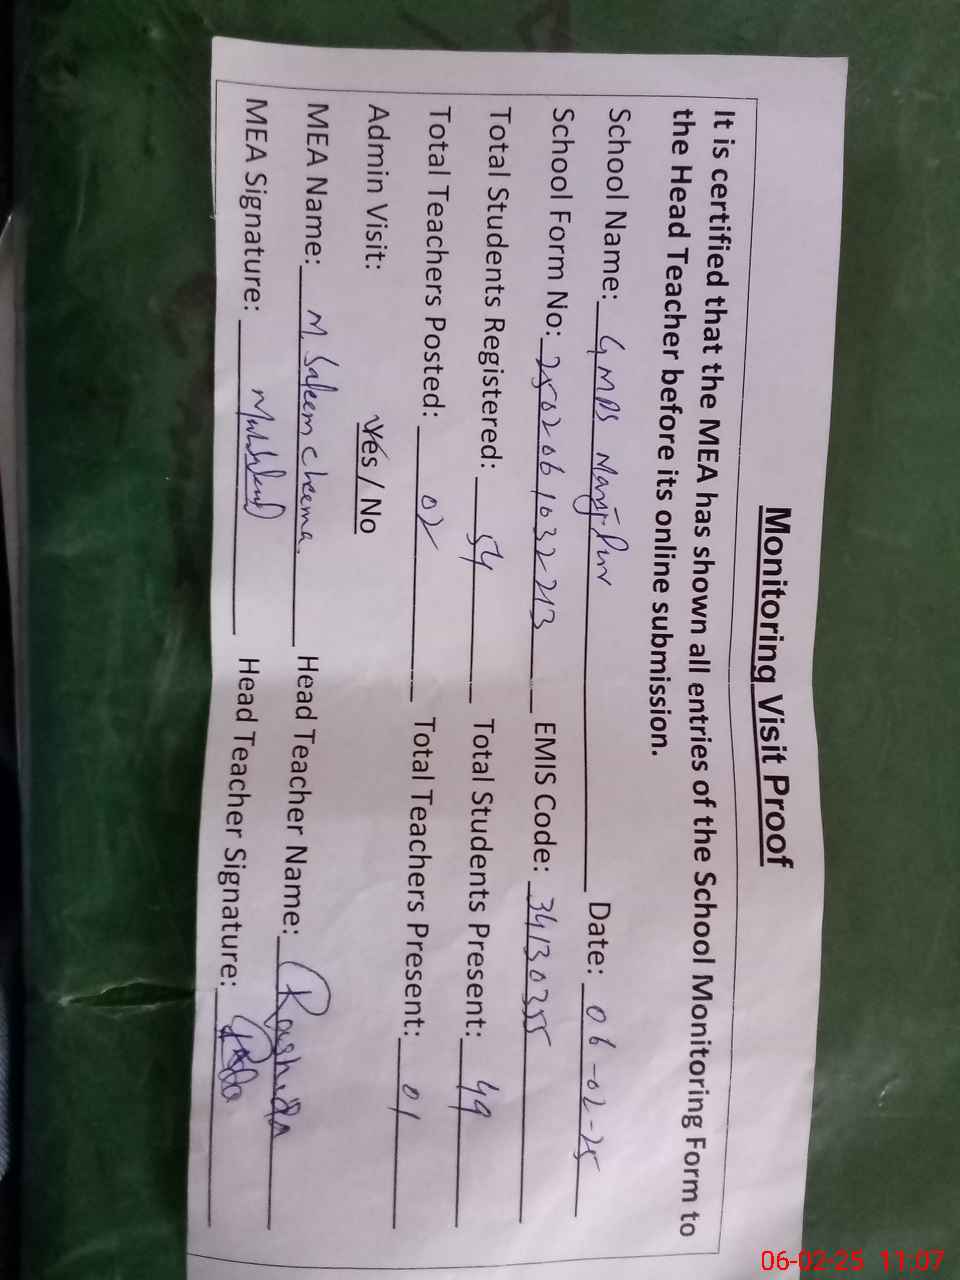 Monitoring Visit Proof
It is certified that the MEA has shown all entries of the School Monitoring Form to
the Head Teacher before its online submission.
School Name: GMPS Date: 06-02-25
School Form No: 2502061032213 EMIS Code: 34130355
Total Students Registered: 54 Total Students Present: 49
Total Teachers Posted: 02 Total Teachers Present: 01
Admin Visit: Yes / No
MEA Name: M. Saleem Cheema. Head Teacher Name: Rashida
MEA Signature: Head Teacher Signature:
06-02-25 11:07